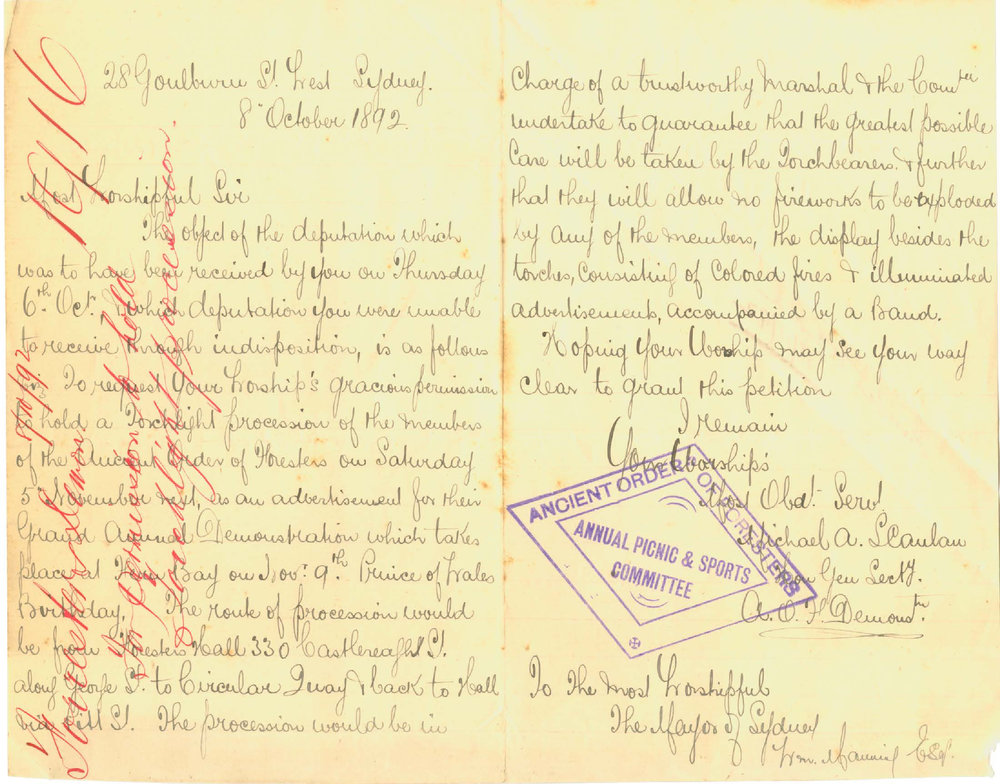 28 Goulburn St. West Sydney.
8th October 1892.
Most Worshipful Sir
The object of the deputation which
was to have been received by you on Thursday
6th Oct. & which deputation you were unable
to receive through indisposition, is as follows
To request Your Worship's gracious permission
to hold a Torchlight procession of the members
of the Ancient Order of Foresters on Saturday
5 November next, as an advertisement for their
Grand Annual Demonstration which takes
place at Bay on Novr. 9th. Prince of Wales
Birthday. The route of procession would
be from Foresters Hall 330 Castlereagh St.
along George St. to Circular Quay & back to Hall
via Pitt St. The procession would be in
Charge of a trustworthy Marshal & the Comtee
undertake to guarantee that the greatest possible
Care will be taken by the Torchbearers. & further
that they will allow no fireworks to be exploded
by any of the members, the display besides the
torches, Consisting of Colored fires & illuminated
advertisements, accompanied by a Band.
Hoping Your Worship may see your way
clear to grant this petition
I remain
Your Worship's
Most Obdt. Servt
Michael A. Scanlan
Hon Gen Secty.
A. O. F. Demonstn.
To The Most Worshipful
The Mayor of Sydney
Wm. Manning Esq.
ANCIENT ORDER OF FORESTERS
ANNUAL PICNIC & SPORTS
COMMITTEE
for permission to hold
a torchlight procession.